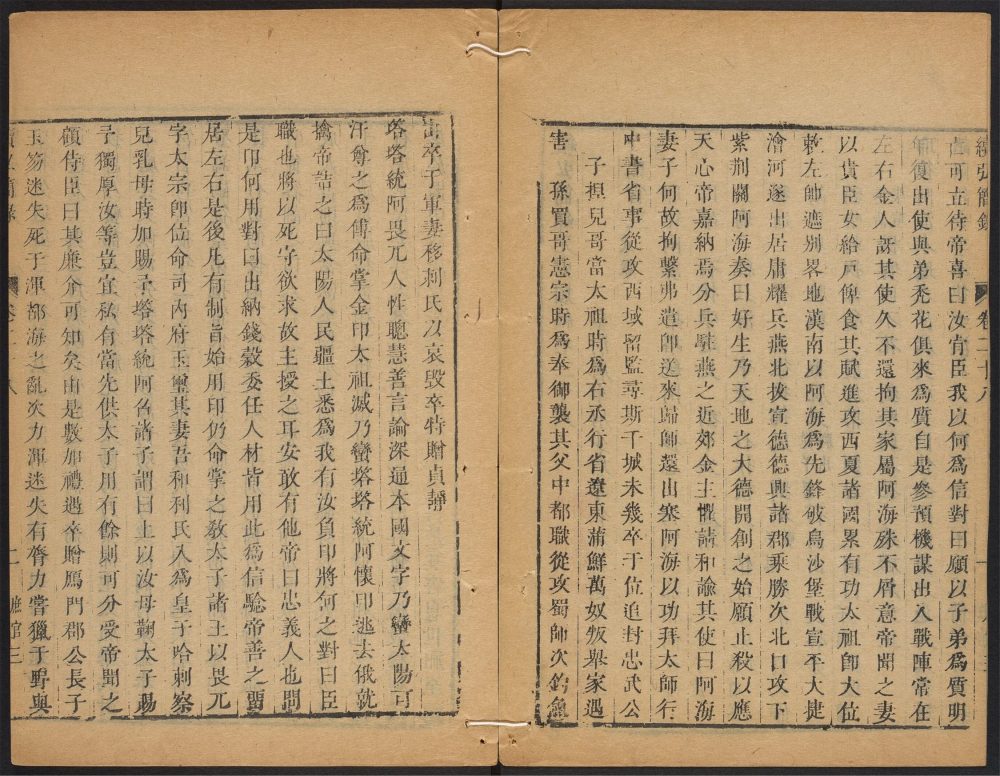 續弘簡錄 卷二十八
占可立待帝喜曰汝肯臣我以何爲信對曰願以子弟爲質明
年復出使與弟禿花俱來爲質自是參預機謀出入戰陣常在
左右金人訝其使久不還拘其家屬阿海殊不屑意帝聞之妻
以貴臣女給戸俾食其賦進攻西夏諸國累有功太祖卽大位
敕左帥遮別畧地漢南以阿海爲先鋒破烏沙堡戰宣平大捷
澮河遂出居庸耀兵燕北拔宣德德興諸郡乘勝次北口攻下
紫荆關阿海奏曰好生乃天地之大德開創之始願止殺以應
天心帝嘉納焉分兵駐燕之近郊金主懼請和諭其使曰阿海
妻子何故拘繫弗遣卽送來歸師還出塞阿海以功拜太師行
中書省事從攻西域留監尋斯干城未幾卒于位追封忠武公
子揑兒哥當太祖時爲右丞行省遼東蒲鮮萬奴叛舉家遇
害 孫買哥憲宗時爲奉御襲其父中都職從攻蜀師次釣魚
山卒于軍妻移剌氏以哀毀卒特贈貞靜
塔塔統阿畏兀人性聰慧善言論深通本國文字乃蠻太陽可
汗尊之爲傅命掌金印太祖滅乃蠻塔塔統阿懷印逃去俄就
擒帝詰之曰太陽人民疆土悉爲我有汝負印將何之對曰臣
職也將以死守欲求故主授之耳安敢有他帝曰忠義人也問
是印何用對曰出納錢穀委任人材皆用此爲信驗帝善之留
居左右是後凡有制旨始用印仍命掌之敎太子諸王以畏兀
字太宗卽位命司內府玉璽其妻吾和利氏入爲皇子哈剌察
兒乳母時加賜予塔塔統阿召諸子謂曰上以汝母鞠太子賜
予獨厚汝等豈宜私有當先供太子用有餘則可分受帝聞之
顧侍臣曰其廉介可知矣由是數加禮遇卒贈鴈門郡公長子
玉笏迷失死于渾都海之亂次力渾迷失有膂力嘗獵于野與